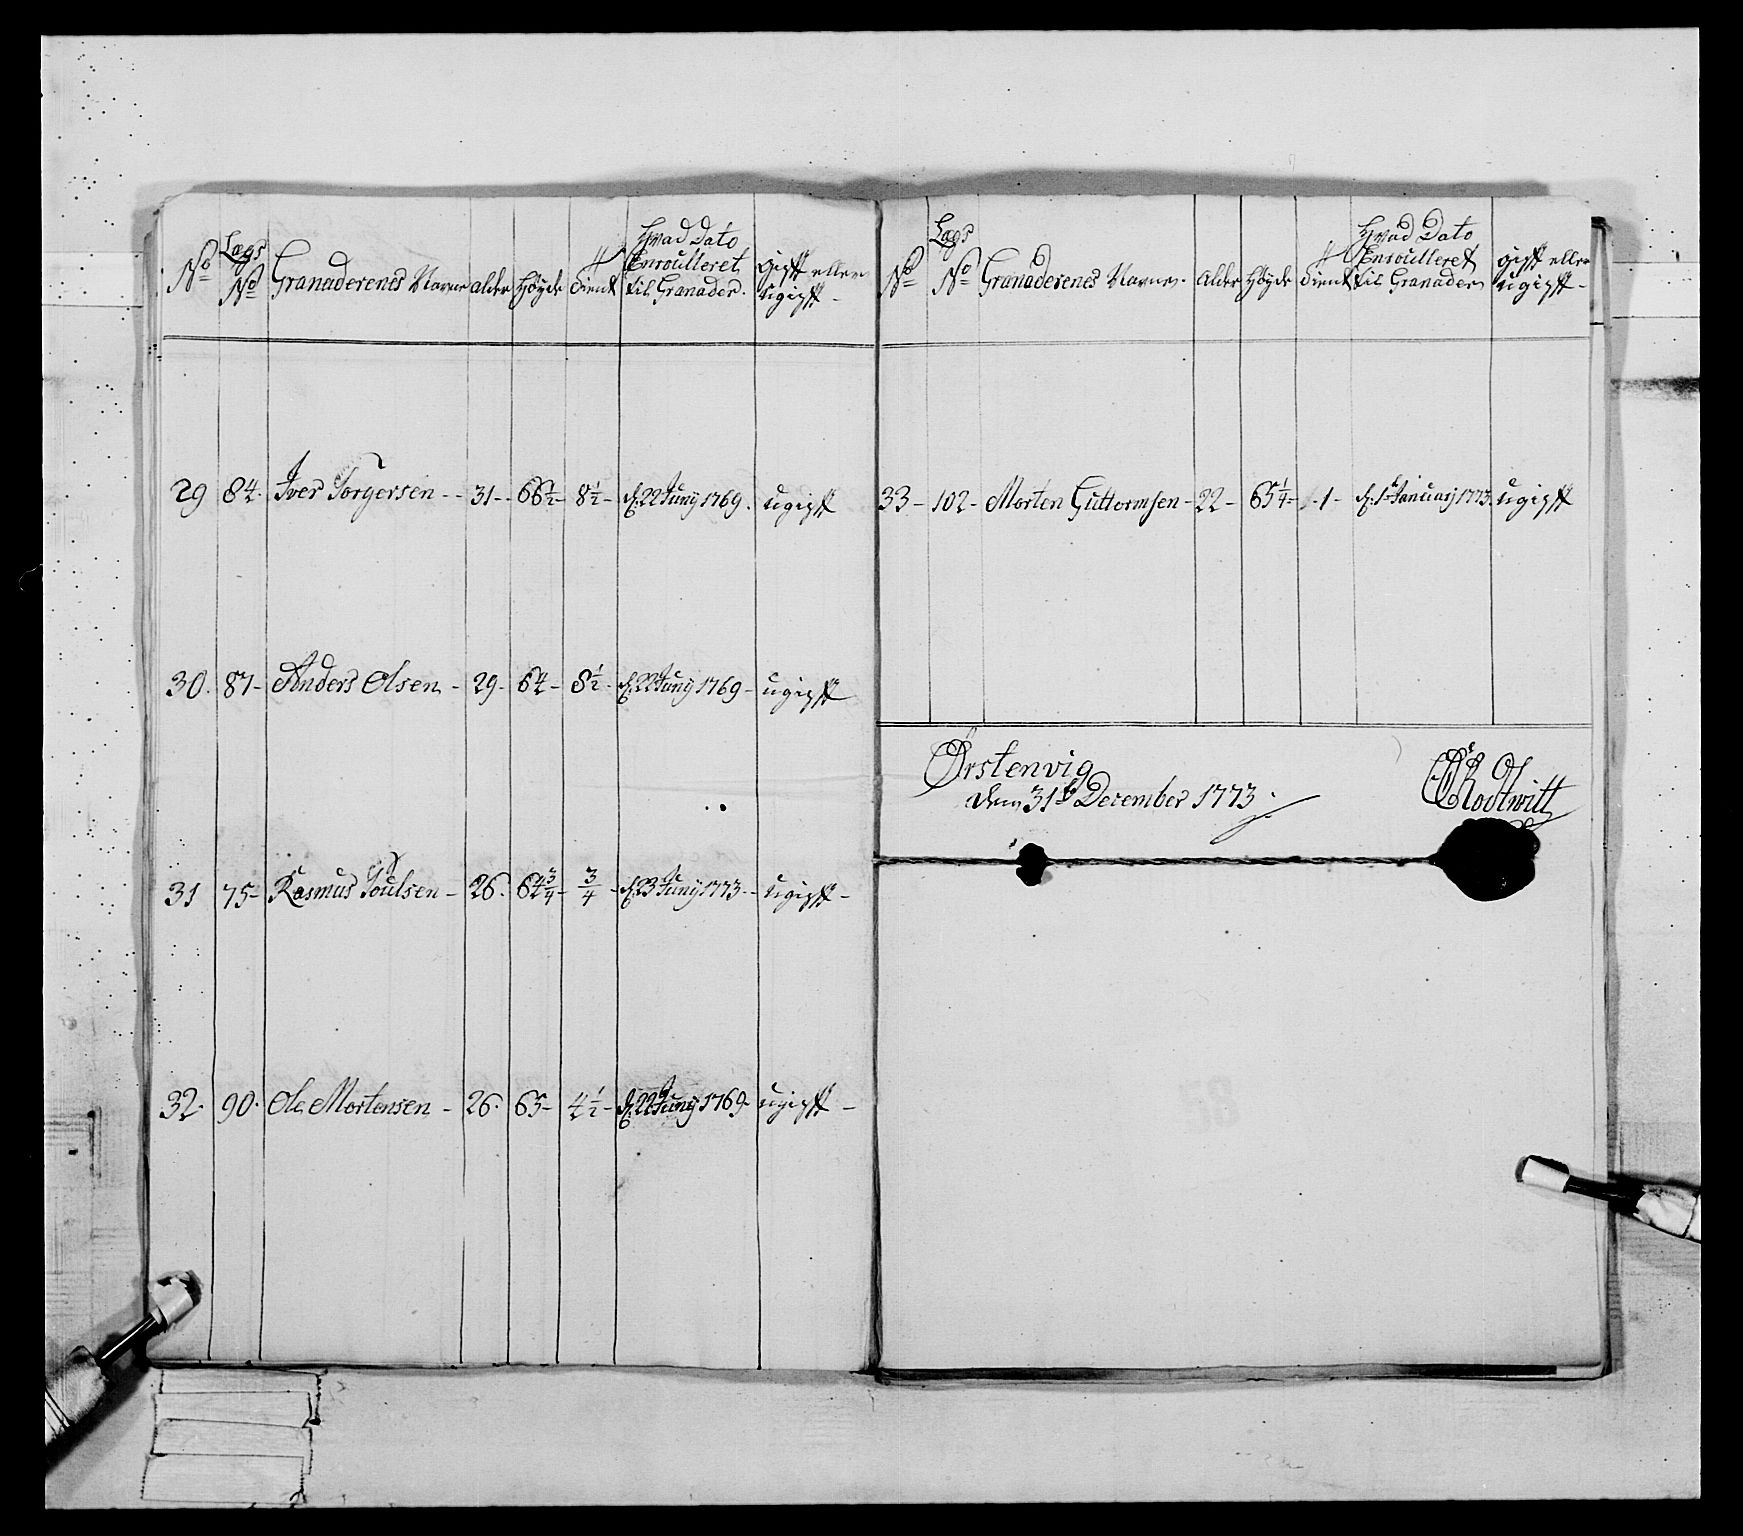 No Lægs No Granaderenes Navne alder Høyde Tient Hvad Dato Enroulleret til Granader. Gift eller ugift -
29 84. Iver Torgersen - - 31 - - 66½ - 8½ - d. 22 Juny 1769. ugift
30. 87 - Anders Olsen - 29 - 64 - 8½ - d. 22 Juny 1769 - ugift
31 75 - Rasmus Poulsen - 26. 64¾ - ¾ - d. 23 Juny 1773 - ugift -
32. 90. Ole Mortensen - 26. 65 - 4½ - d. 22 Juny 1769 - ugift -
No Lægs No Granaderenes Navne - Alder Høyde Tient Hvad Dato Enroulleret til Granader gift eller ugift -
33 - 102 - Morten Guttormsen - 22 - 65¼ - 1 - d. 1 January 1773. ugift
Ørstenvig
den 31te December 1773.
Rodtwitt